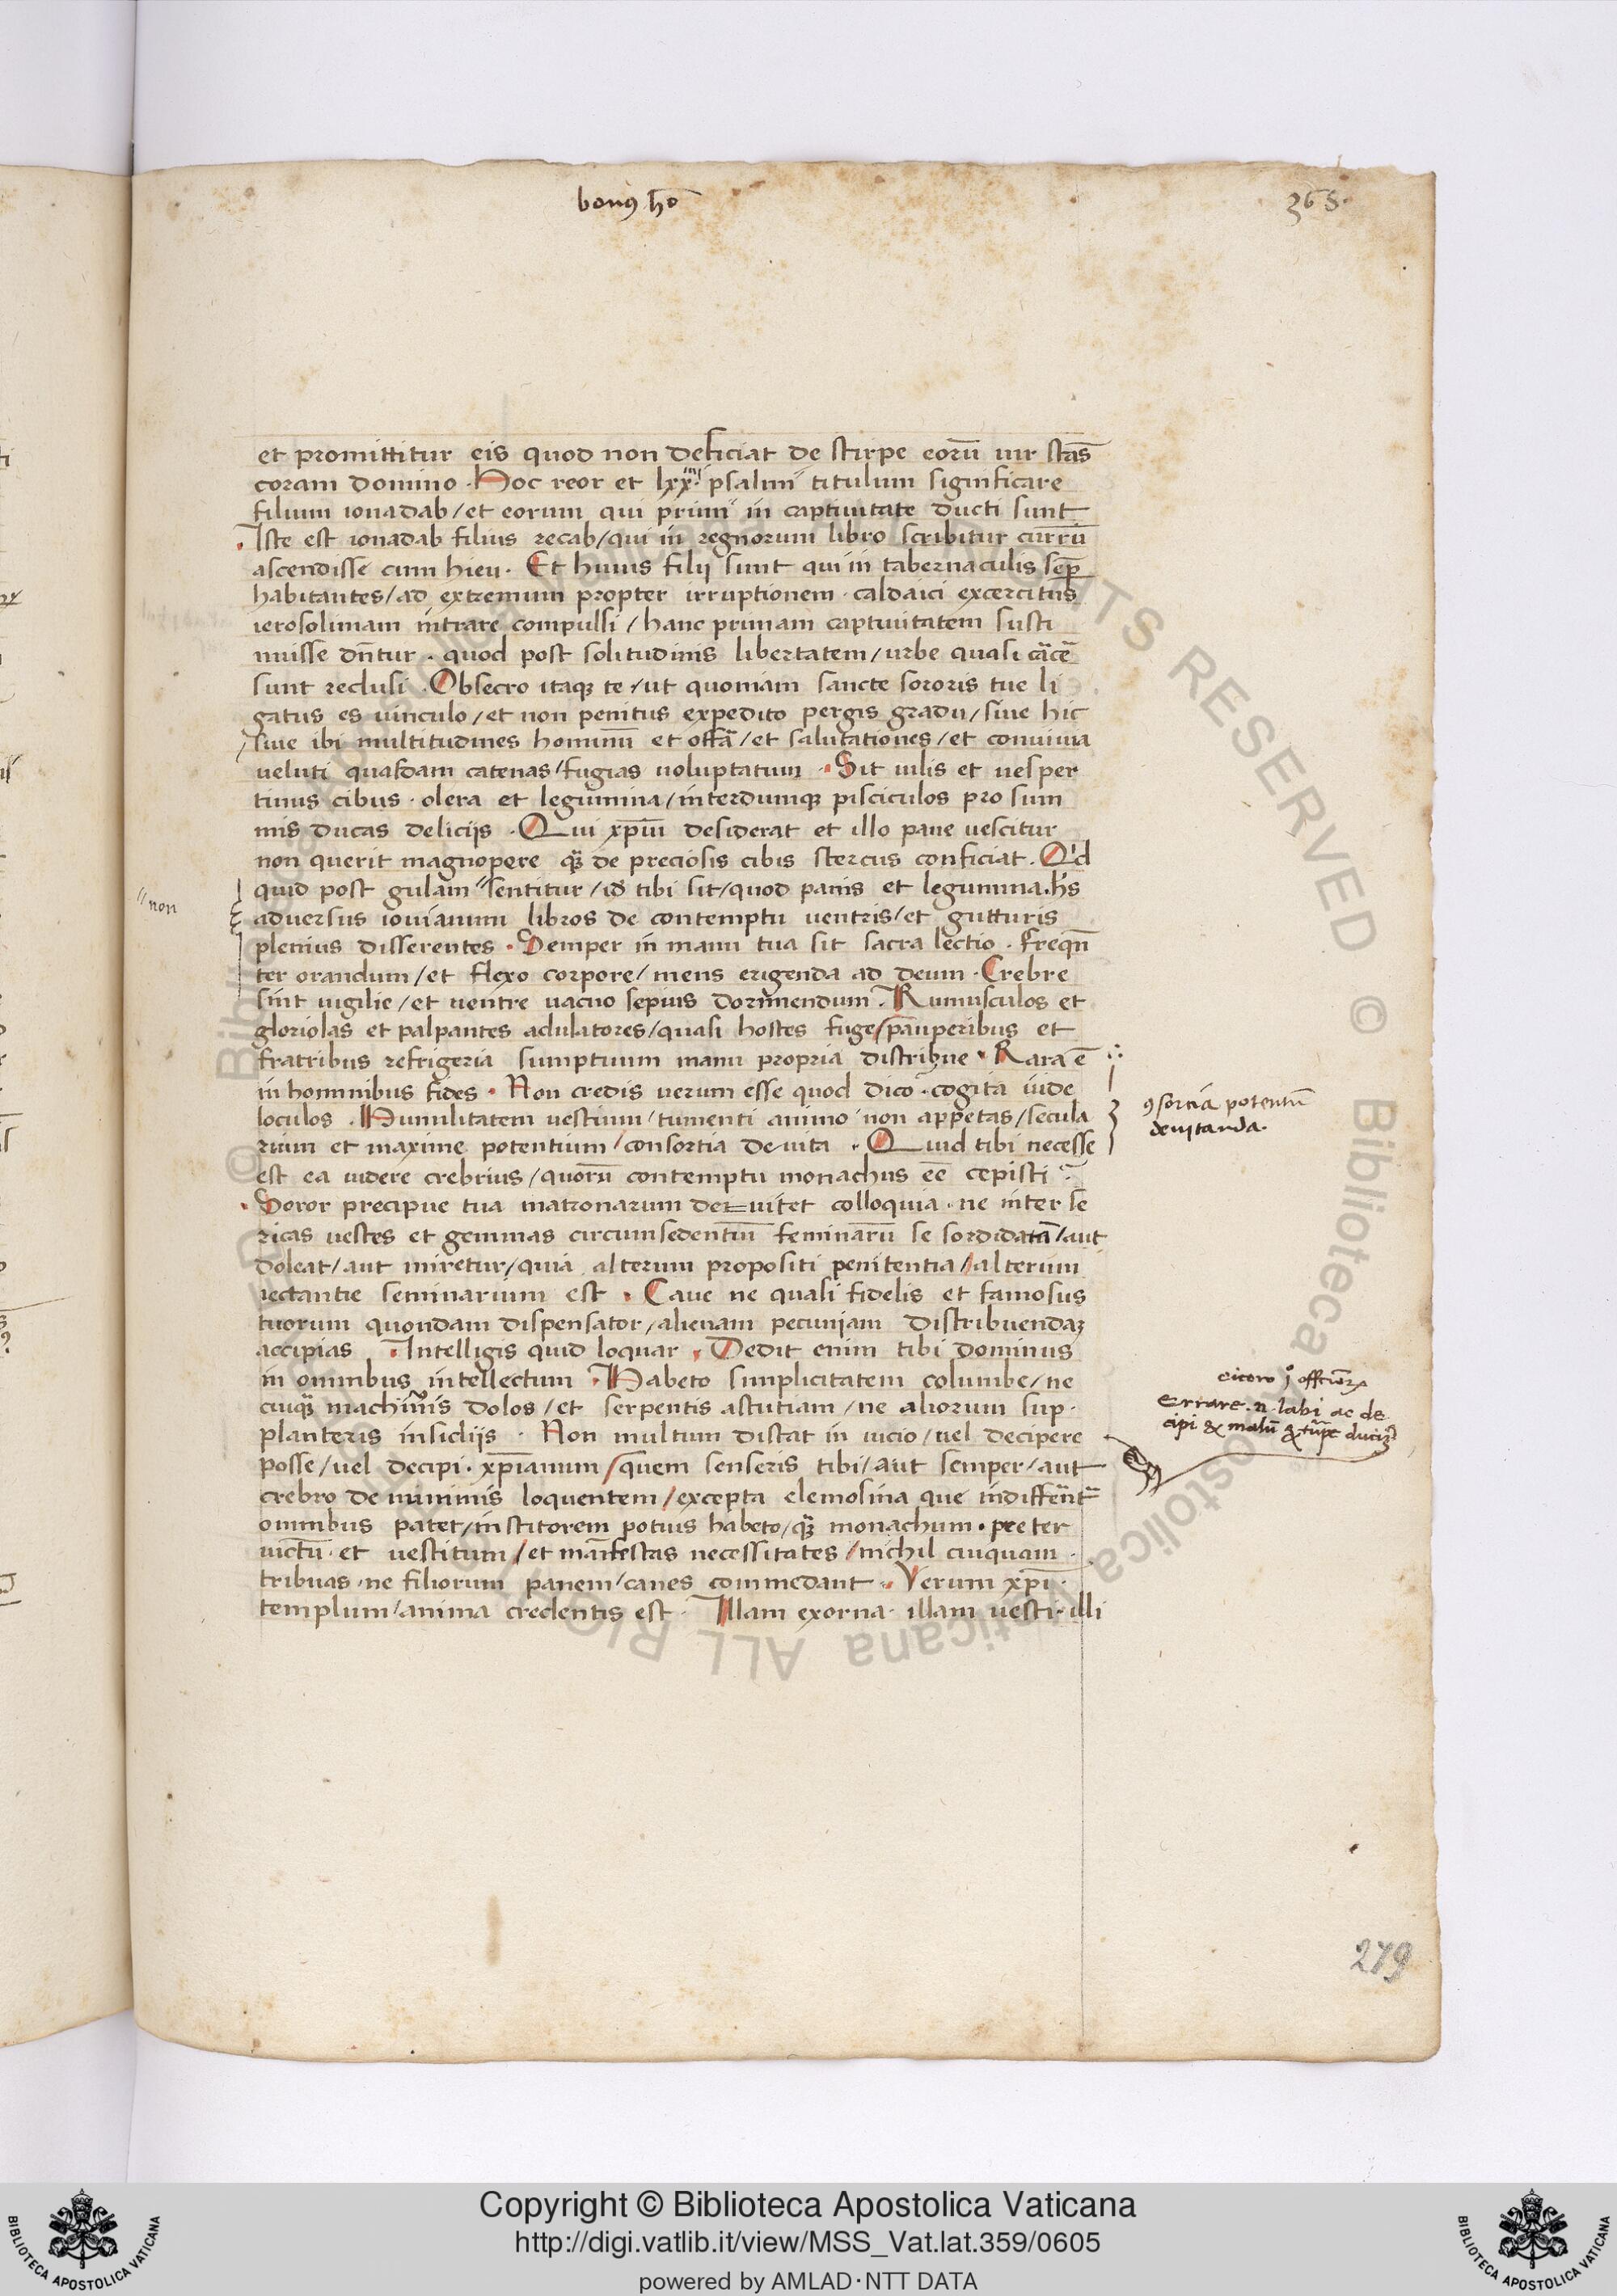 bonꝯ ho̅
365.
et promittitur eis quod non deficiat de stirpe eoru̅ uir sta̅s
coram domino . Hoc reor et lxx. psalmi titulum significare
filium ionadab / et eorum qui primi in captiuitate ducti sunt
. Iste est ionadab filius recab / qui in regnorum libro scribitur curru̅
ascendisse cum hieu . Et huius filij sunt qui in tabernaculis semp̅
habitantes / ad extremum propter irruptionem . caldaici excercitus
ierosolimam intrare compulsi / hanc primam captiuitatem susti
nuisse dn̅tur . quod post solitudinis libertatem / urbe quasi ca̅ce̅
sunt reclusi . Obsecro itaqꝫ te / ut quoniam sancte sororis tue li
gatus es uinculo / et non penitus expedito pergis gradu / siue hic
/ siue ibi multitudines hominu̅ et offa̅ / et salutationes / et conuiuia
ueluti quasdam catenas / fugias uoluptatum . Sit uilis et uesper
tinus cibus . olera et legumina / interdumqꝫ pisciculos pro sum
mis ducas delicijs . Qui xp̅m desiderat et illo pane uescitur
non querit magnopere qꝫ̅ de preciosis cibis stercus conficiat . Qͥd
quid post gulam " sentitur / id tibi sit / quod panis et legumina . h̅s
" non
aduersus iouianum libros de contemptu uentris / et gutturis
plenius disserentes . Semper in manu tua sit sacra lectio . freqn̅
ter orandum / et flexo corpore / mens erigenda ad deum . Crebre
sint uigilie / et uentre uacuo sepius dormiendum . Rumusculos et
gloriolas et palpantes adulatores / quasi hostes fuge / pauperibus et
fratribus refrigeria sumptuum manu propria distribue . Rara e̅
in hominibus fides . Non credis uerum esse quod dico . cogita iude
loculos . Humilitatem uestium / tumenti animo non appetas / secula
rium et maxime potentium / consortia deuita . Quid tibi necesse
ꝯsortia potentu̅
deuitanda .
est ea uidere crebrius / quoru̅ contemptu monachus ee̅ cepisti ?
. Soror precipue tua matronarum deuitet colloquia . ne inter se
ricas uestes et gemmas circumsedentiu̅ feminaru̅ se sordidata̅ / aut
doleat / aut miretur / quia alterum propositi penitentia / alterum
iectantie seminarium est . Caue ne quasi fidelis et famosus
tuorum quondam dispensator / alienam pecuniam distribuendaꝫ
accipias . Intelligis quid loquar . Dedit enim tibi dominus
in omnibus intellectum . Habeto simplicitatem columbe / ne
cuiqꝫ̅ machineris dolos / et serpentis astutiam / ne aliorum sup
planteris insidijs . Non multum distat in uicio / uel decipere
cicero j° officioꝝ
Errare . n . labi ac de
cipi & malu̅ & turpe duciꝫ̅
posse / uel decipi . xp̅ianum / quem senseris tibi / aut semper / aut
crebro de nummis loquentem / excepta elemosina que indiffe̅nt̅
omnibus patet / institorem potius habeto / qꝫ̅ monachum . preter
uictu̅ et uestitum / et manifestas necessitates / nichil cuiquam
tribuas . ne filiorum panem / canes commedant . Verum xp̅i
templum / anima credentis est . Illam exorna . illam uesti . illi
279
Copyright © Biblioteca Apostolica Vaticana
http://digi.vatlib.it/view/MSS_Vat.lat.359/0605
powered by AMLAD·NTT DATA
BIBLIOTECA APOSTOLICA VATICANA
BIBLIOTECA APOSTOLICA VATICANA